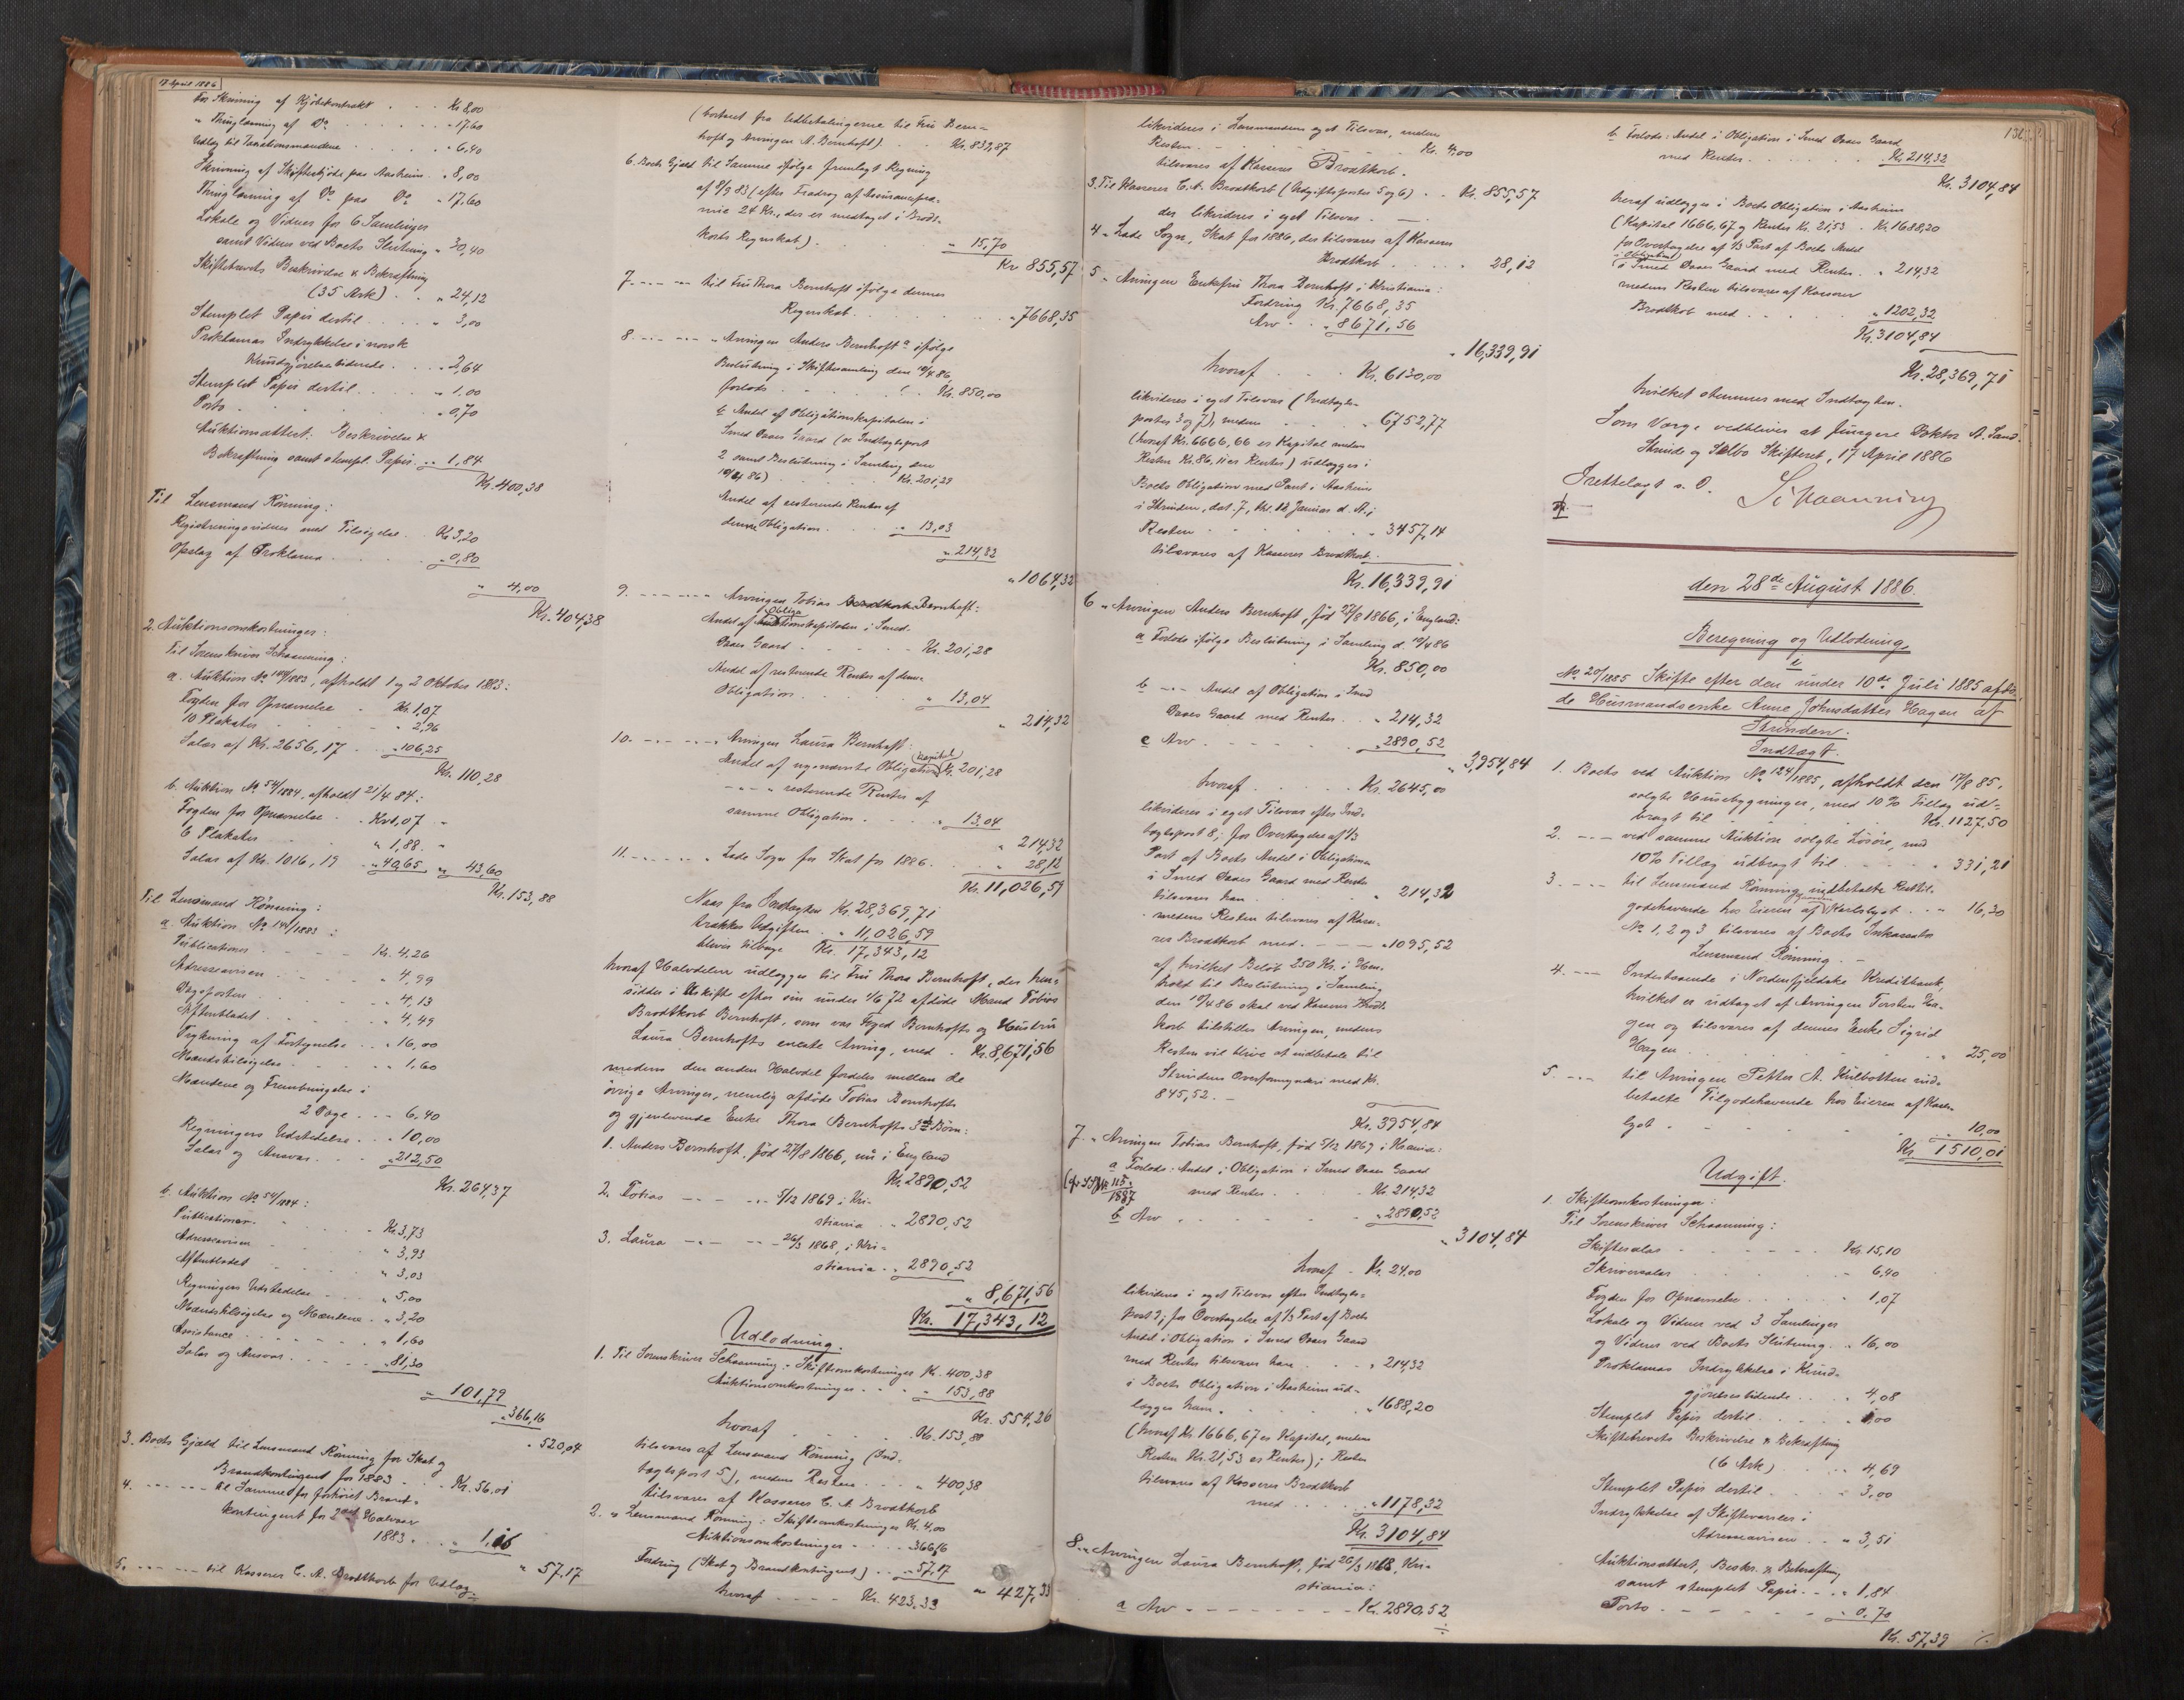 17 April 1886
For Skrivning af Kjöbekontrakt . . . Kr 8,00
" Thinglæsning af Do . . . . . " 17,60
Udlæg til Taxationsmændene . . . . " 6,40
Skrivning af Skifteskjöde paa Aasheim . " 8,00
Thinglæsning af Do paa Do " 17,60
Lokale og Vidner for 6 Samlinger
samt Vidner ved Boets Slutning " 30,40
Skiftebrevets Beskrivelse & Bekræftning
(35 Ark) . . " 24,12
Stemplet Papir dertil . . . . " 3,00
Proklamas Indrykkelse i norsk
Kundgjörelsestidende . . . " 2,64
Stemplet Papir dertil . . . . " 1,00
Porto . . . . . . " 0,70
Auktionsattest: Beskrivelse &
Bekræftning samt stempl. Papir . " 1,84
Kr. 400,38
Til Lensmand Rönning:
Registreringsvidner med Tilsigelse . Kr 3,20
Opslag af Proklama . . . . " 0,80
" 4,00
Kr. 404,38
2. Auktionsomkostninger:
Til Sorenskriver Schaanning:
a. Auktion No 141/1883, afholdt 1 og 2 Oktober 1883:
Fogden for Opnævnelse . Kr. 1,07
10 Plakater . . . " 2,96
Salær af Kr. 2656,17 . . " 106,25
Kr. 110,28
b. Auktion No 54/1884, afholdt 21/4 84:
Fogden for Opnævnelse . . Kr 1,07
6 Plakater . . . " 1,88
Salær af Kr. 1016,19 . " 40,65 " 43,60
Kr. 153,88
Til Lensmand Rönning:
a. Auktion No 141/1883:
Publicationer . . . . . Kr. 4,26
Adresseavisen . . . . " 4,99
Dagsposten . . . . " 4,13
Aftenbladet . . . . " 4,49
Trykning af Fortegnelse . . . " 16,00
Mændstilsigelse . . . . " 1,60
Mændene og Frembringelse i
2 Dage . . . 6,40
Regningers Udstedelse . . . 10,00
Salær og Ansvar . . . " 212,50
Kr. 264,37
b. Auktion No 54/1884:
Publicationer . . . . . Kr. 3,73
Adresseavisen . . . . " 3,93
Aftenbladet . . . . " 3,03
Regningers Udstedelse . . . " 5,00
Mændstilsigelse og Mændene . " 3,20
Assistance . . . . . " 1,60
Salær og Ansvar . . . . " 81,30
" 101,79
" 366,16
" 520,04
3. Boets Gjæld til Lensmand Rönning for Skat og
Brandkontingent for 1883 . . Kr. 56,01
4. - - - til Samme for forhöiet Brand-
kontingent for 2det Halvaar
1883 . . " 1,16
" 57,17
5. - - - til Kasserer C. A. Brodtkorb for Udlæg
(bortseet fra Udbetalingerne til Fru Bern-
hoft og Arvingen A. Bernhoft) . . . Kr. 839,87
6. Boets Gjæld til Samme ifölge fremlagt Regning
af 8/9 83 (efter Fradrag af Assurancepræ-
mie 24 Kr., der er medtaget i Brodt-
korbs Regnskab) . . . . " 15,70
Kr 855,57
7. - - - til Fru Thora Bernhoft ifölge dennes
Regnskab . . . . . . . " 7668,35
8. - - - " Arvingen Anders Bernhoft a ifölge
Beslutning i Skiftesamling den 10/4 86
forlods . . . . . Kr. 850,00
b Andel af Obligationskapitalen i
Smed Daaes Gaard (se Indtægtspost
2 samt Beslutning i Samling den
10/4 86) . . . . Kr. 201,29
Andel af resterende Renter af
denne Obligation . . . " 13,03
" 214,32
" 1064,32
9. - - - Arvingen Tobias Brodtkorb Bernhoft:
Andel af Obligationskapitalen i Smed
Daaes Gaard . . . . Kr. 201,28
Andel af resterende Renter af denne
Obligation . . . . " 13,04
" 214,32
10. - - - " Arvingen Laura Bernhoft:
Andel af nysnævnte Obligations kapital Kr. 201,28
- - " resterende Renter af
samme Obligation . . . " 13,04
" 214,32
11. - - - " Lade Sogn for Skat for 1886 . . " 28,12
Kr. 11,026,59
Naar fra Indtægten Kr. 28,369,71
trækkes Udgiften . " 11,026,59
bliver tilbage Kr. 17,343,12
hvoraf Halvdelen udlægges til Fru Thora Bernhoft, der hen-
sidder i Uskifte efter sin under 1/6 72 afdöde Mand Tobias
Brodtkorb Bernhoft, som var Foged Bernhofts og Hustru
Laura Bernhofts eneste Arving, med . Kr. 8,671,56
medens den anden Halvdel fordeles mellem de
övrige Arvinger, nemlig afdöde Tobias Bernhofts
og gjenlevende Enke Thora Bernhofts 3de Börn:
1. Anders Bernhoft, föd 27/8 1866, nu i England
Kr. 2890,52
2. Tobias - - - 5/12 1869 i Kri-
stiania . " 2890,52
3. Laura - - - 26/3 1868, i Kri-
stiania . . " 2890,52
" 8,671,56
Kr. 17,343,12
Udlodning.
1. Til Sorenskriver Schaanning: Skifteomkostninger Kr. 400,38
Auktionsomkostninger . . . " 153,88
Kr. 554,26
hvoraf . . . . . Kr. 153,88
tilsvares af Lensmand Rönning (Ind-
tægtspost 5), medens Resten . . " 400,38
tilsvares af Kasserer C. A. Brodtkorb
2. " Lensmand Rönning: Skifteomkostninger Kr. 4,00
Auktionsomkostninger . . " 366,16
Fordring (Skat og Brandkontingent) . . " 57,17
" 427,33
hvoraf . . . . Kr. 423,33
likvideres i Lensmandens eget Tilsvar, medens
Resten . . . . . . . Kr. 4,00
tilsvares af Kasserer Brodtkorb.
3. Til Kasserer C. A. Brodtkorb (Udgiftsposter 5 og 6) . . Kr. 855,57
der likvideres i eget Tilsvar.
4 " Lade Sogn, Skat for 1886, der tilsvares af Kasserer
Brodtkorb . . . . " 28,12
5 " Arvingen Enkefru Thora Bernhoft i Kristiania:
Fordring Kr. 7668,35
Arv . . " 8671,56
" 16,339,91
hvoraf . . . Kr. 6130,00
likvideres i eget Tilsvar (Indtægts-
poster 3 og 7), medens . . . " 6752,77
(hvoraf Kr. 6666,66 er Kapital medens
Resten Kr. 86,11 er Renter) udlægges i
Boets Obligation med Pant i Aasheim
i Strinden, dat. 7, thl. 12 Januar d. A.;
Resten . . . . . " 3457,14
tilsvares af Kasserer Brodtkorb.
Kr. 16,339,91
6 " Arvingen Anders Bernhoft, föd 27/8 1866, i England:
a Forlods ifölge Beslutning i Samling d. 10/4 86
Kr. 850,00
b - - Andel af Obligation i Smed
Daaes Gaard med Renter . . " 214,32
c Arv . . . . . . " 2890,52
" 3,954,84
hvoraf . . . . Kr. 2645,00
likvideres i eget Tilsvar efter Ind-
tægtspost 8; for Overtagelse af 1/3
Part af Boets Andel i Obligation
i Smed Daaes Gaard med Renter
tilsvarer han . . . . " 214,32
medens Resten tilsvares af Kasse-
rer Brodtkorb med . - - - " 1095,52
af hvilket Belöb 250 Kr. i Hen-
hold til Beslutning i Samling
den 10/4 86 skal ved Kasserer Brodt-
korb tilstilles Arvingen, medens
Resten vil blive at indbetale til
Strindens Overformynderi med Kr.
845,52.
Kr. 3954,84
7. " Arvingen Tobias Bernhoft, föd 5/12 1869 i Krania:
a Forlods: Andel i Obligation i Smed Daaes Gaard
med Renter . . . . Kr. 214,32
b Arv . . . . . . " 2890,52
" 3104,84
hvoraf . Kr. 24,00
likvideres i eget Tilsvar efter Indtægts-
post 9; for Overtagelse af 1/3 Part af Boets
Andel i Obligation i Smed Daaes Gaard
med Renter tilsvarer han . . . " 214,32
i Boets Obligation i Aasheim ud-
lægges ham . . . . . " 1688,20
(hvoraf Kr. 1666,67 er Kapital, medens
Resten Kr. 21,53 er Renter); Resten
tilsvares af Kasserer Brodtkorb
med . . . . " 1178,32
Kr. 3104,84
8. " Arvingen Laura Bernhoft, föd 26/3 1868, Kri-
stiania:
a Arv . - - - - - - Kr. 2890,52
b. Forlods: Andel i Obligation i Smed Daaes Gaard
med Renter . . . . . . Kr. 214,32
Kr. 3104,84
hvoraf udlægges i Boets Obligation i Aasheim
(Kapital 1666,67 og Renter Kr. 21,53 . Kr. 1688,20
for Overtagelse af 1/3 Part af Boets Andel
i Obligation
i Smed Daaes Gaard med Renter . . " 214,32
medens Resten tilsvares af Kasserer
Brodtkorb med . . . . " 1202,32
Kr. 3104,84
Kr. 28,369,71
hvilket stemmer med Indtægten.
Som Værge vedbliver at fungere Doktor A. Sand.
Strinde og Selbo Skifteret, 17 April 1886
Schaanning
Irettelagt s. D.
den 28de August 1886.
Beregning og Udlodning,
i
No 20/1885 Skifte efter den under 10de Juli 1885 afdö-
de Husmandsenke Anne Johnsdatter Hagen af
Strinden.
Indtægt.
1. Boets ved Auktion No 124/1885, afholdt den 17/8 85,
solgte Husebygninger, med 10% Tillæg ud-
bragt til . . . . . . Kr. 1127,50
2. - - - ved samme Auktion solgte Lösöre, med
10% Tillæg udbragt til . . . . " 331,21
3. - - - til Lensmand Rönning indbetalte Resttil-
godehavende hos Eieren af Gaarden Karlslyst . . " 16,30
No 1, 2 og 3 tilsvares af Boets Inkassator
Lensmand Rönning.
4. - - - Indestaaende i Nordenfjeldske Kreditbank,
hvilket er udtaget af Arvingen Torsten Ha-
gen og tilsvares af dennes Enke Sigrid
Hagen . . . . . . " 25,00
5. - - - til Arvingen Petter A. Kulbotten ind-
betalte Tilgodehavende hos Eieren af Karls-
lyst . . . . . . . " 10,00
Kr. 1510,01
Udgift.
1. Skifteomkostninger:
Til Sorenskriver Schaanning:
Skiftesalær . . . . . . . Kr. 15,10
Skriversalær . . . . . . " 6,40
Fogden for Opnævnelse . . . . " 1,07
Lokale og Vidner ved 3 Samlinger
og Vidner ved Boets Slutning . . " 16,00
Proklamas Indrykkelse i Kund-
gjörelsestidende . . . . " 4,08
Stemplet Papir dertil . . . . " 1,00
Skiftebrevets Beskrivelse & Bekræftning
(6 Ark) . . . " 4,69
Stemplet Papir dertil . . . . " 3,00
Indrykkelse af Skiftevarsler i
Adresseavisen . . " 3,51
Auktionsattest, Beskr. & Bekræftning
samt stemplet Papir . . . " 1,84
Porto . . . . . . " 0,70
Kr. 57,39